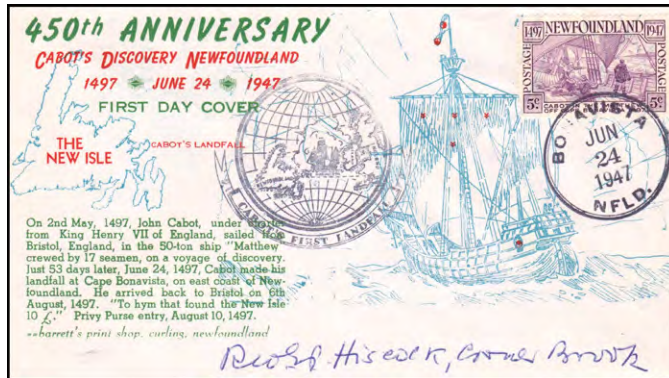 450th ANNIVERSARY
CABOT'S DISCOVERY NEWFOUNDLAND
1497 JUNE 24 1947
FIRST DAY COVER
THE
NEW ISLE
CABOT'S LANDFALL
On 2nd May, 1497, John Cabot, under charter
from King Henry VII of England, sailed from
Bristol, England, in the 50-ton ship "Matthew
crewed by 17 seamen, on a voyage of discovery.
Just 53 days later, June 24, 1497, Cabot made his
landfall at Cape Bonavista, on east coast of New-
foundland. He arrived back to Bristol on 6th
August, 1497. "To hym that found the New Isle
10 £." Privy Purse entry, August 10, 1497.
--barrett's print shop, curling, newfoundland
CABOT'S FIRST LANDFALL
1497 NEWFOUNDLAND 1947
POSTAGE
POSTAGE
CABOT IN THE
5c
5c
BONAVISTA
JUN
24
1947
NFLD.
Hiscock, Corner Brook